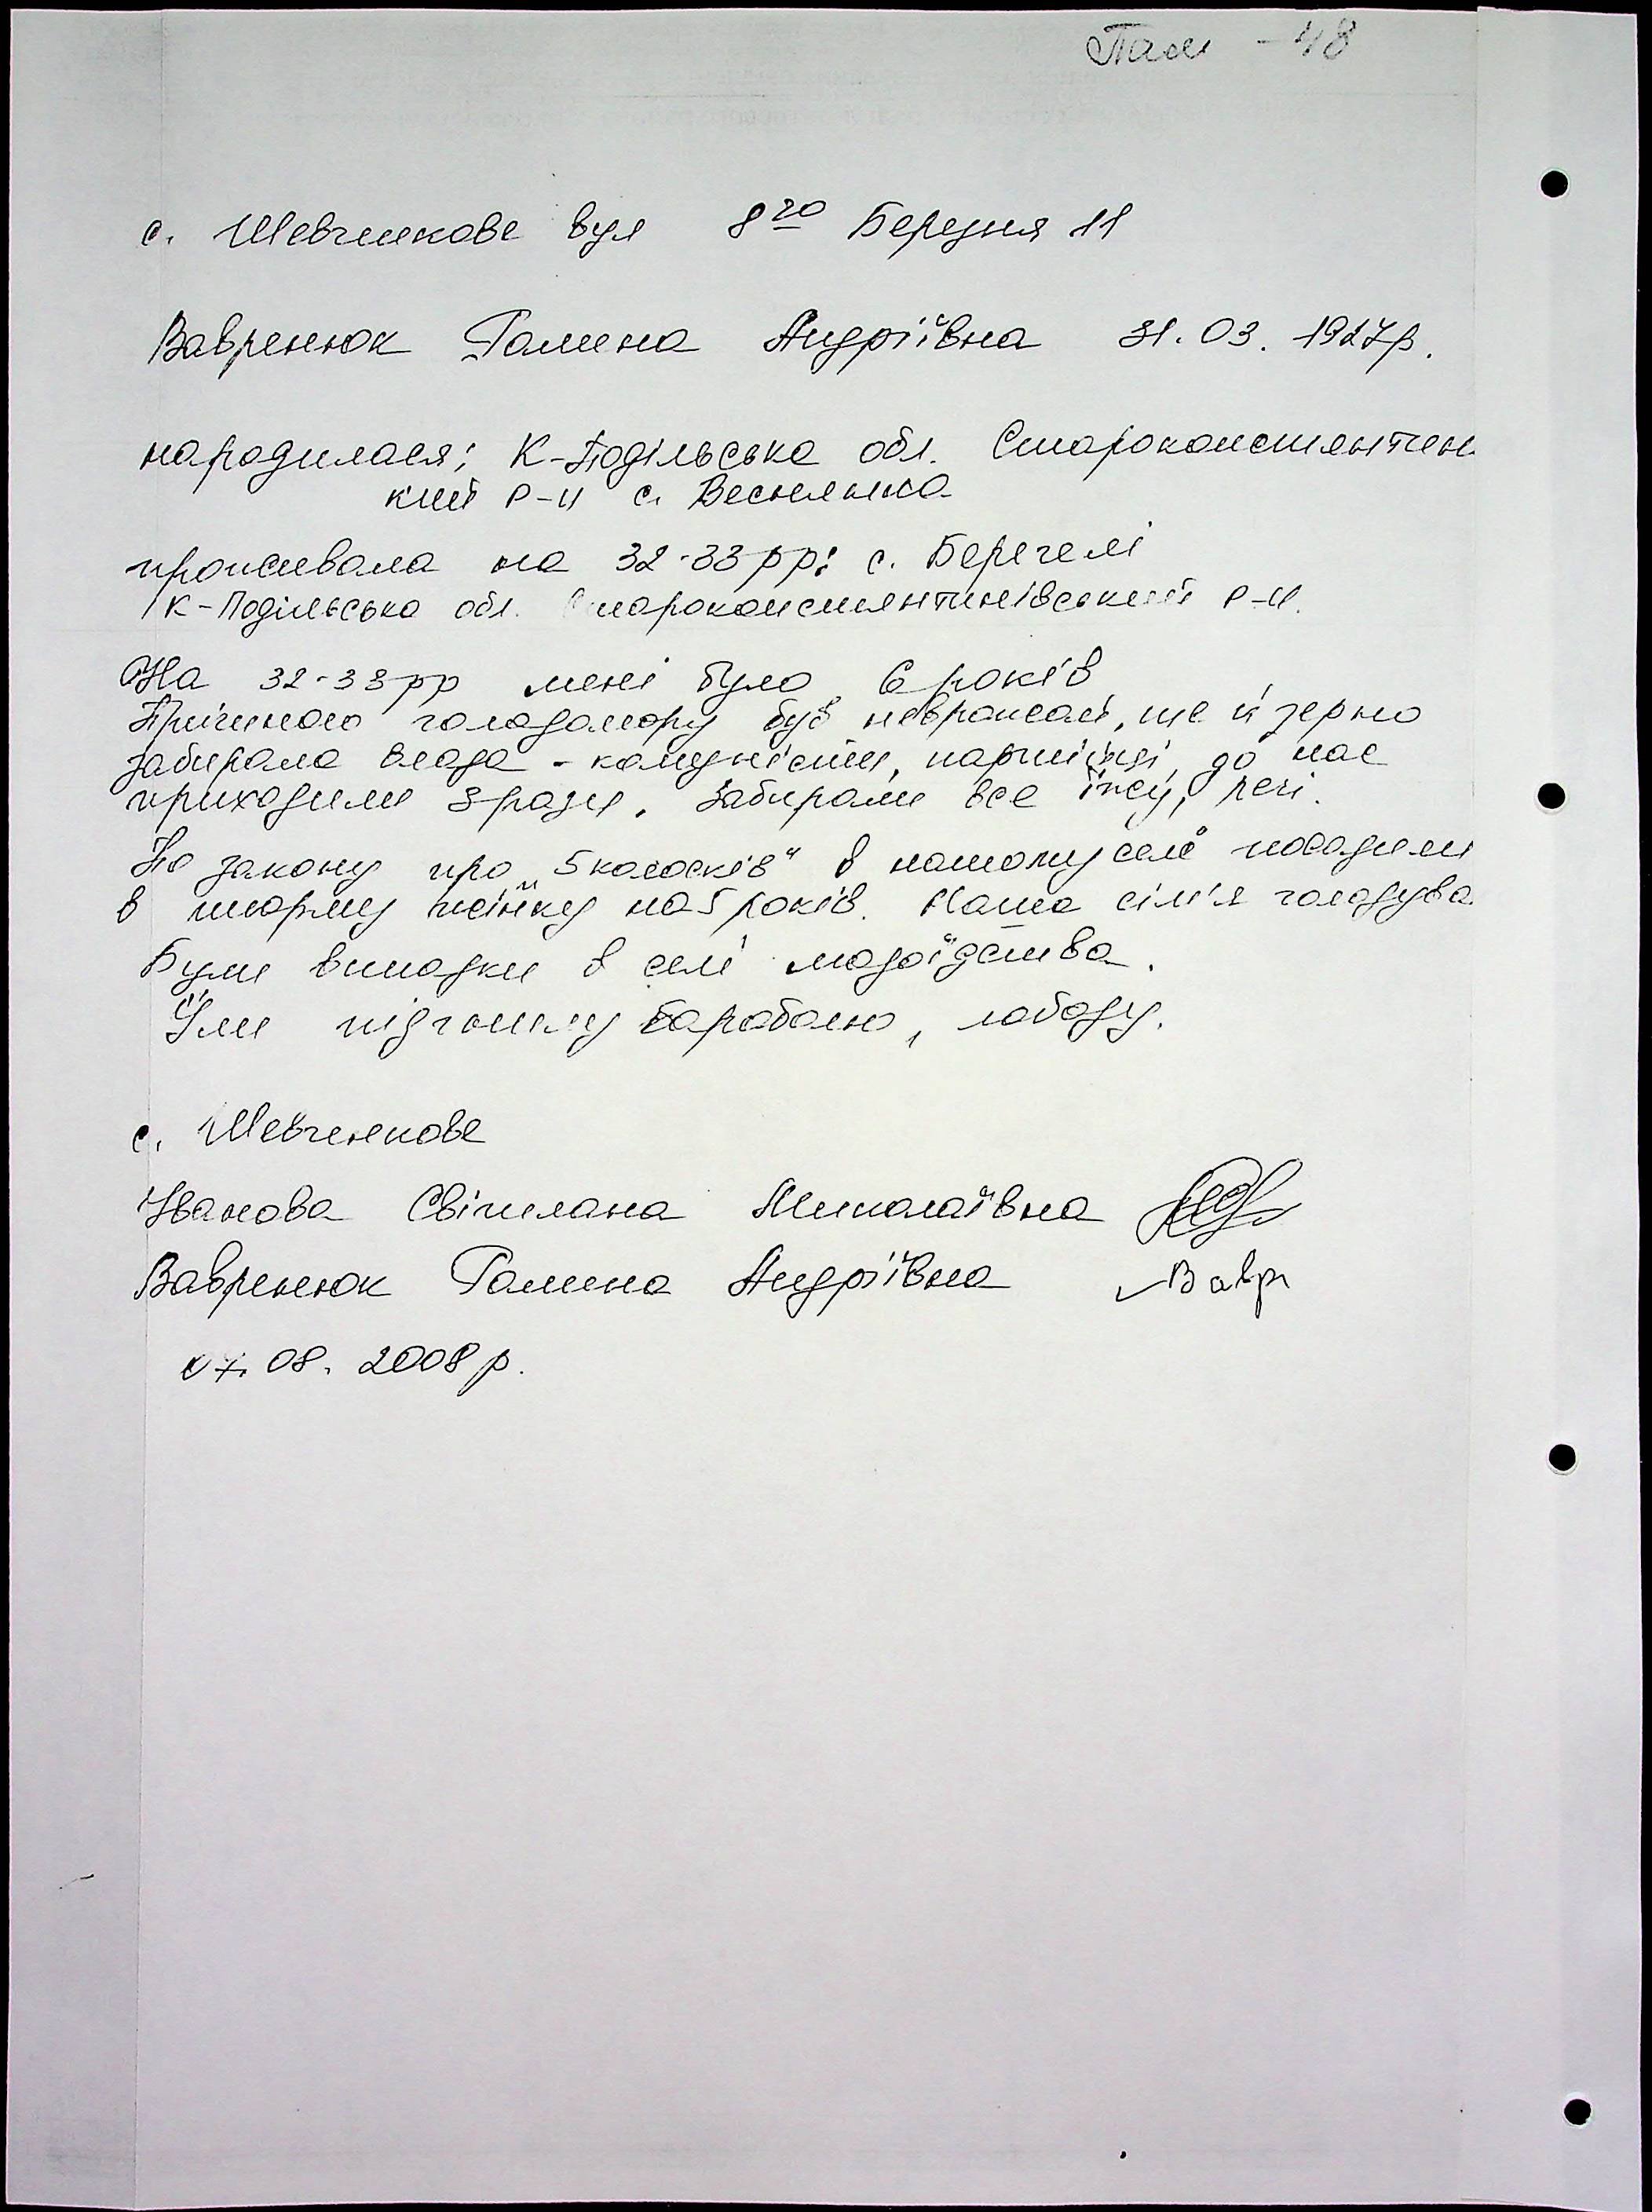 Пам - 48
с. Шевченкове вул 8го Березня 11
Вавренюк Галина Андріївна 31.03.1927р.
народилася: К-Подільська обл. Старокостянтин
кий р-н с. Веснянка
проживала на 32-33рр: с. Берегелі
К-Подільська обл. Староконстянтинівський р-н.
На 32-33рр мені було 6 років
Причиною голодомору був неврожай, ще й зерно
забирала влада - комуністи, партійці, до нас
приходили 3 рази. Забирали все їжу, речі.
По закону про „5 колосків" в нашому селі посадили
в тюрму жінку на 5 років. Наша сім'я голодува
Були випадки в селі людоїдства.
Їли підгнилу бараболю, лободу.
с. Шевченкове
Іванова Світлана Миколаївна
Вавренюк Галина Андріївна Вавр
07.08.2008р.